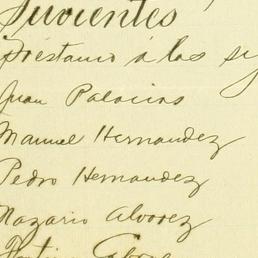 Sirvientes
préstamo á las
Juan Palacios
Manuel Hernandez
Pedro Hernandez
Nazario Alvarez